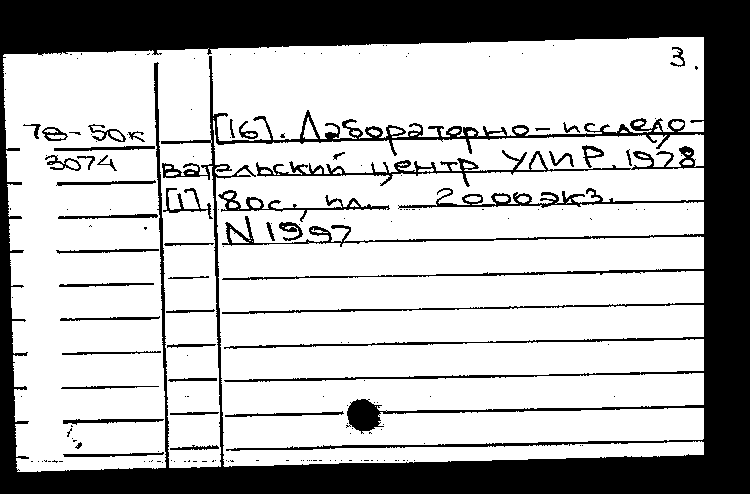 3.
78-50к [16]. Лабораторно-исследо-
3074 вательский центр УЛИР. 1978
[1], 80с., ил. 2000экз.
N 1997